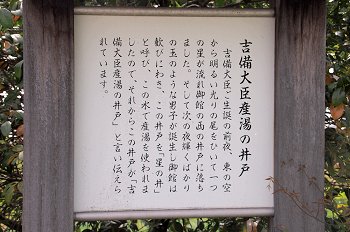 吉備大臣産湯の井戸
吉備大臣ご生誕の前夜、東の空
から明るい光りの尾をひいて一つ
の星が流れ御館の函の井戸に落ち
ました。そして次の夜輝くばかり
の玉のような男子が誕生し御館は
歓びにわき、この井戸を「星の井」
と呼び、この水で産湯を使われま
したので、それからこの井戸が「吉
備大臣産湯の井戸」と言い伝えら
れています。